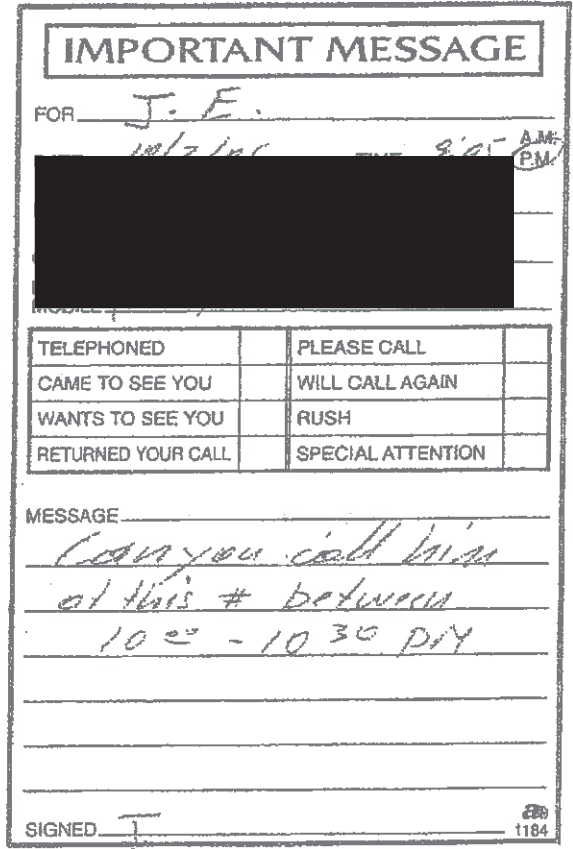 IMPORTANT MESSAGE
FOR J. E.
TIME A.M.
P.M.
MOBILE
TELEPHONED PLEASE CALL
CAME TO SEE YOU WILL CALL AGAIN
WANTS TO SEE YOU RUSH
RETURNED YOUR CALL SPECIAL ATTENTION
MESSAGE
Can you call him
at this # between
10 00 - 10 30 PM
SIGNED
1184